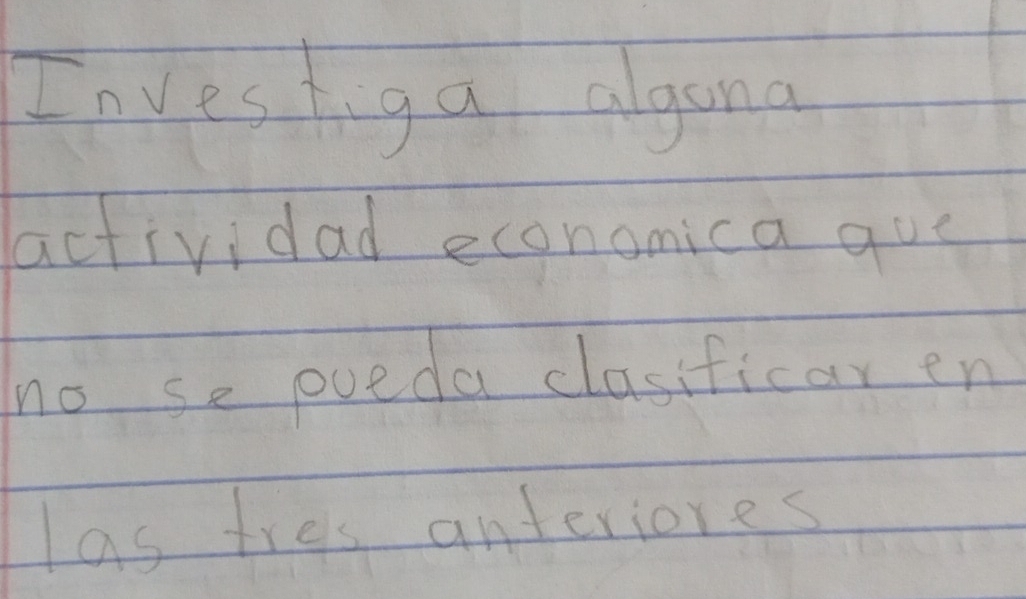 Investiga alguna
actividad economica que
no se pueda clasificar en
las tres anteriores